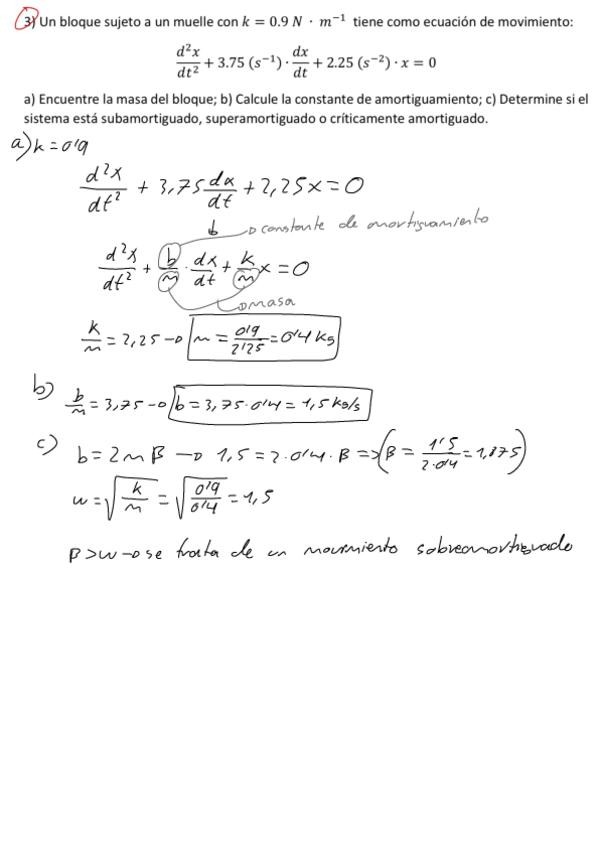 3) Un bloque sujeto a un muelle con k = 0.9 N · m⁻¹ tiene como ecuación de movimiento:
d²x/dt² + 3.75 (s⁻¹) · dx/dt + 2.25 (s⁻²) · x = 0
a) Encuentre la masa del bloque; b) Calcule la constante de amortiguamiento; c) Determine si el
sistema está subamortiguado, superamortiguado o críticamente amortiguado.
a) k = 0'9
d²x/dt² + 3,75 dx/dt + 2,25x = 0
b → constante de amortiguamiento
d²x/dt² + b/m · dx/dt + k/m x = 0
→ masa
k/m = 2,25 → m = 0'9/2'25 = 0'4 kg
b) b/m = 3,75 → b = 3,75 · 0'4 = 1,5 kg/s
c) b = 2mβ → 1,5 = 2 · 0'4 · β => (β = 1'5/2·0'4 = 1,875)
w = √(k/m) = √(0'9/0'4) = 1,5
β > w → se trata de un movimiento sobreamortiguado